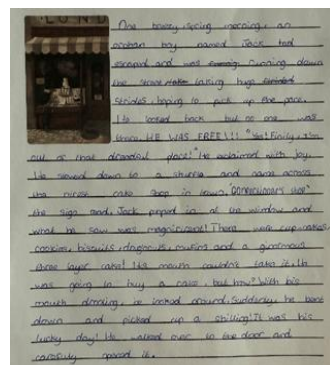 LUND
One breezy, spring morning, an
orphan boy named Jack had
escaped and was running down
the street taking huge
strides, hoping to pick up the pace.
He looked back but no one was
there. HE WAS FREE!!! "Yes! Finily, I'm
out of that dreadful place!" He exclaimed with joy.
He slowed down to a shuffle and came across
the nicest cake shop in town. "CONFECTIONARY SHOP"
the sign read. Jack peped in at the window and
what he saw was magnificent! There were cup-cakes,
cookies, biscuits, doughnuts, mufins and a ginormous
three layer cake! His mouth couldn't take it. He
was going to buy a cake, but how? With his
mouth drooling, he looked around. Suddenly, he bent
down and picked up a shilling! It was his
lucky day! He walked over to the door and
carefuly opened it.